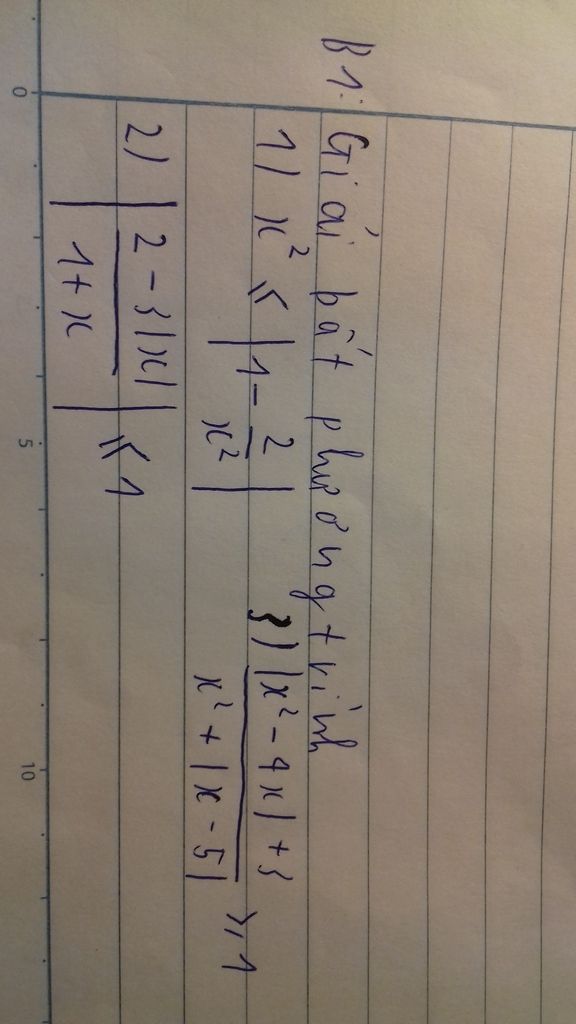 B1: Giải bất phương trình
1) x² ≤ |1 - 2/x²|
3) (|x² - 4x| + 3)/(x² + |x - 5|) ≥ 1
2) |(2 - 3|x|)/(1 + x)| ≤ 1
0 5 10